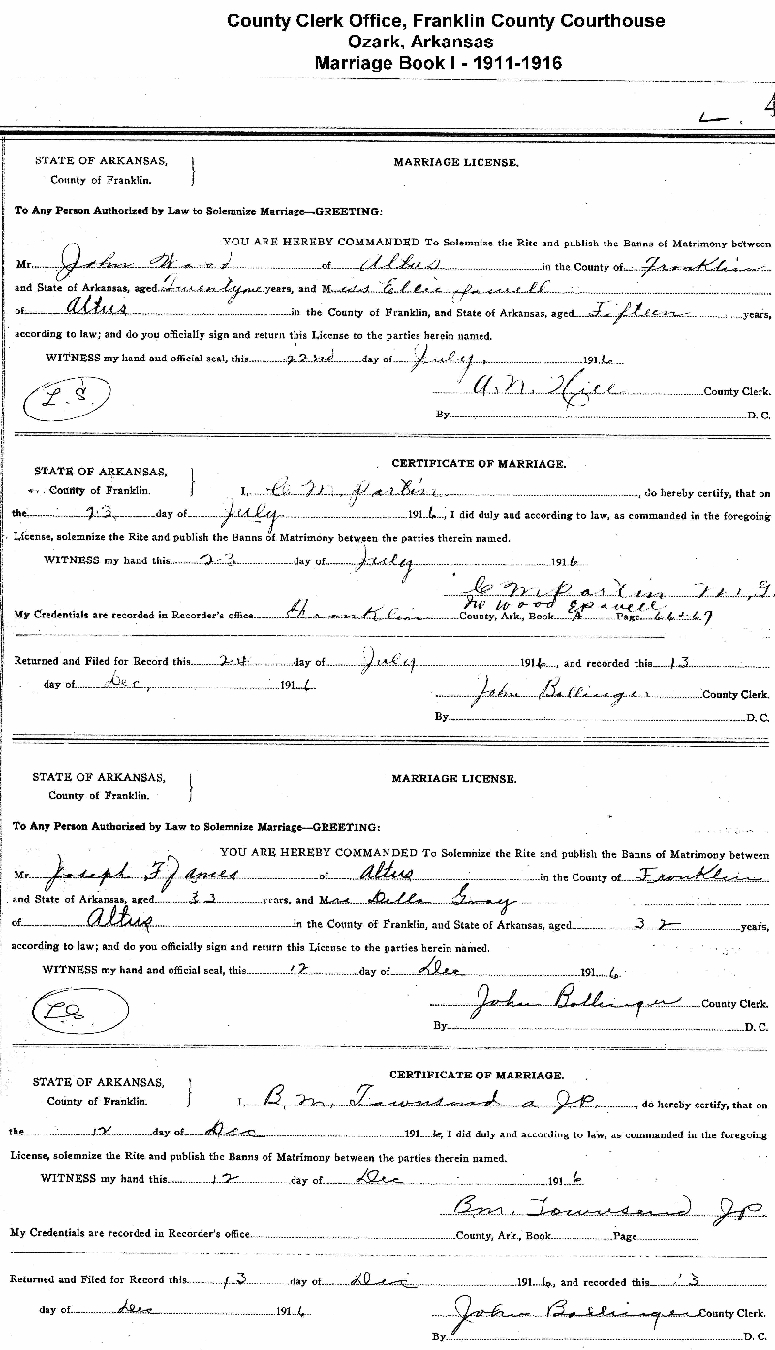 County Clerk Office, Franklin County Courthouse
Ozark, Arkansas
Marriage Book I - 1911-1916
4
STATE OF ARKANSAS,
County of Franklin.
MARRIAGE LICENSE.
To Any Person Authorized by Law to Solemnize Marriage—GREETING:
YOU ARE HEREBY COMMANDED To Solemnize the Rite and publish the Banns of Matrimony between
Mr. John Wood of Altus in the County of Franklin
and State of Arkansas, aged years, and Miss Ellie
of Altus in the County of Franklin, and State of Arkansas, aged Fifteen years,
according to law; and do you officially sign and return this License to the parties herein named.
WITNESS my hand and official seal, this 22nd day of July, 1916
L.S.
A.N. Hice County Clerk.
By D. C.
CERTIFICATE OF MARRIAGE.
STATE OF ARKANSAS,
County of Franklin.
I, C M , do hereby certify, that on
the 23 day of July 1916, I did duly and according to law, as commanded in the foregoing
License, solemnize the Rite and publish the Banns of Matrimony between the parties therein named.
WITNESS my hand this 23 day of July 1916
C M M.G.
My Credentials are recorded in Recorder's office Franklin County, Ark., Book A Page 66+67
Returned and Filed for Record this 24 day of July 1916, and recorded this 13
day of Dec, 1916
John Bollinger County Clerk.
By D. C.
STATE OF ARKANSAS,
County of Franklin.
MARRIAGE LICENSE.
To Any Person Authorized by Law to Solemnize Marriage—GREETING:
YOU ARE HEREBY COMMANDED To Solemnize the Rite and publish the Banns of Matrimony between
Mr. Joseph F James of Altus in the County of Franklin
and State of Arkansas, aged 33 years, and Mrs Della Gray
of Altus in the County of Franklin, and State of Arkansas, aged 32 years,
according to law; and do you officially sign and return this License to the parties herein named.
WITNESS my hand and official seal, this 12 day of Dec 1916
LS
John Bollinger County Clerk.
By D. C.
CERTIFICATE OF MARRIAGE.
STATE OF ARKANSAS,
County of Franklin.
I, B. M. Townsend a JP , do hereby certify, that on
the 12 day of Dec 1916, I did duly and according to law, as commanded in the foregoing
License, solemnize the Rite and publish the Banns of Matrimony between the parties therein named.
WITNESS my hand this 12 day of Dec 1916
BM. Townsend JP
My Credentials are recorded in Recorder's office County, Ark., Book Page
Returned and Filed for Record this 13 day of Dec 1916, and recorded this 13
day of Dec 1916
John Bollinger County Clerk.
By D. C.